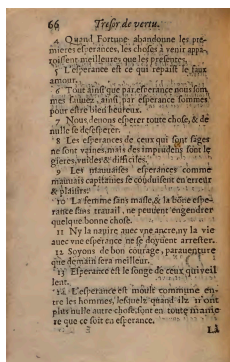 66 Tresor de vertu.
4 Quand Fortune abandonne les pre-
mieres esperances, les choses à venir appa-
roissent meilleures que les presentes.
5 L'esperance est ce qui repaist le faux
amour.
6 Tout ainsi que par esperance nous som-
mes ainsi par esperance sommes
pour estre bien heureux.
7 Nous deuons esperer toute chose, & de
nulle se desesperer.
8 Les esperances de ceux qui sont sages
ne sont vaines, mais des impudens sont le-
gieres, vuides & difficiles.
9 Les mauuaises esperances comme
mauuais capitaines se conduisent en erreur
& plaisirs.
10 La femme sans masle, & la bõne espe-
rance sans trauail, ne peuuent engendrer
quelque bonne chose.
11 Ny la nauire auec vne ancre, ny la vie
auec vne esperance ne se doyuent arrester.
12 Soyons de bon courage, parauenture
que demain sera meilleur.
13 Esperance est le songe de ceux qui veil
lent.
14 L'esperance est moult commune en-
tre les hommes, lesquels quand ilz n'ont
plus nulle autre chose, sont en toute manie
re que ce soit en esperance.
La